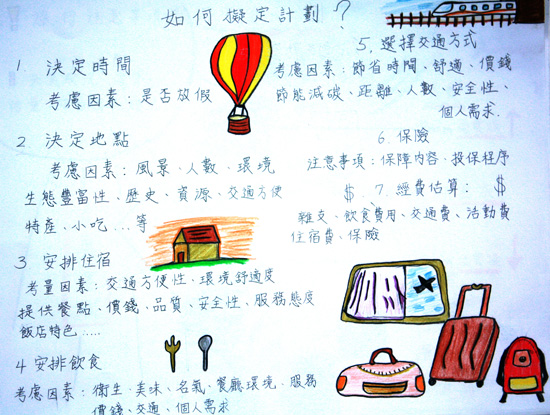 如何擬定計劃?
1 決定時間
考慮因素:是否放假
2 決定地點
考慮因素:風景、人數、環境
生態豐富性、歷史、資源、交通方便
特產、小吃...等
3 安排住宿
考量因素:交通方便性、環境舒適度
提供餐點、價錢、品質、安全性、服務態度
飯店特色.....
4 安排飲食
考慮因素:衛生、美味、名氣、餐廳環境、服務
價錢、交通、個人需求
5. 選擇交通方式
考慮因素:節省時間、舒適、價錢
節能減碳、距離、人數、安全性、
個人需求.
6. 保險
注意事項:保障內容、投保程序
$ 7. 經費估算: $
雜支、飲食費用、交通費、活動費
住宿費、保險